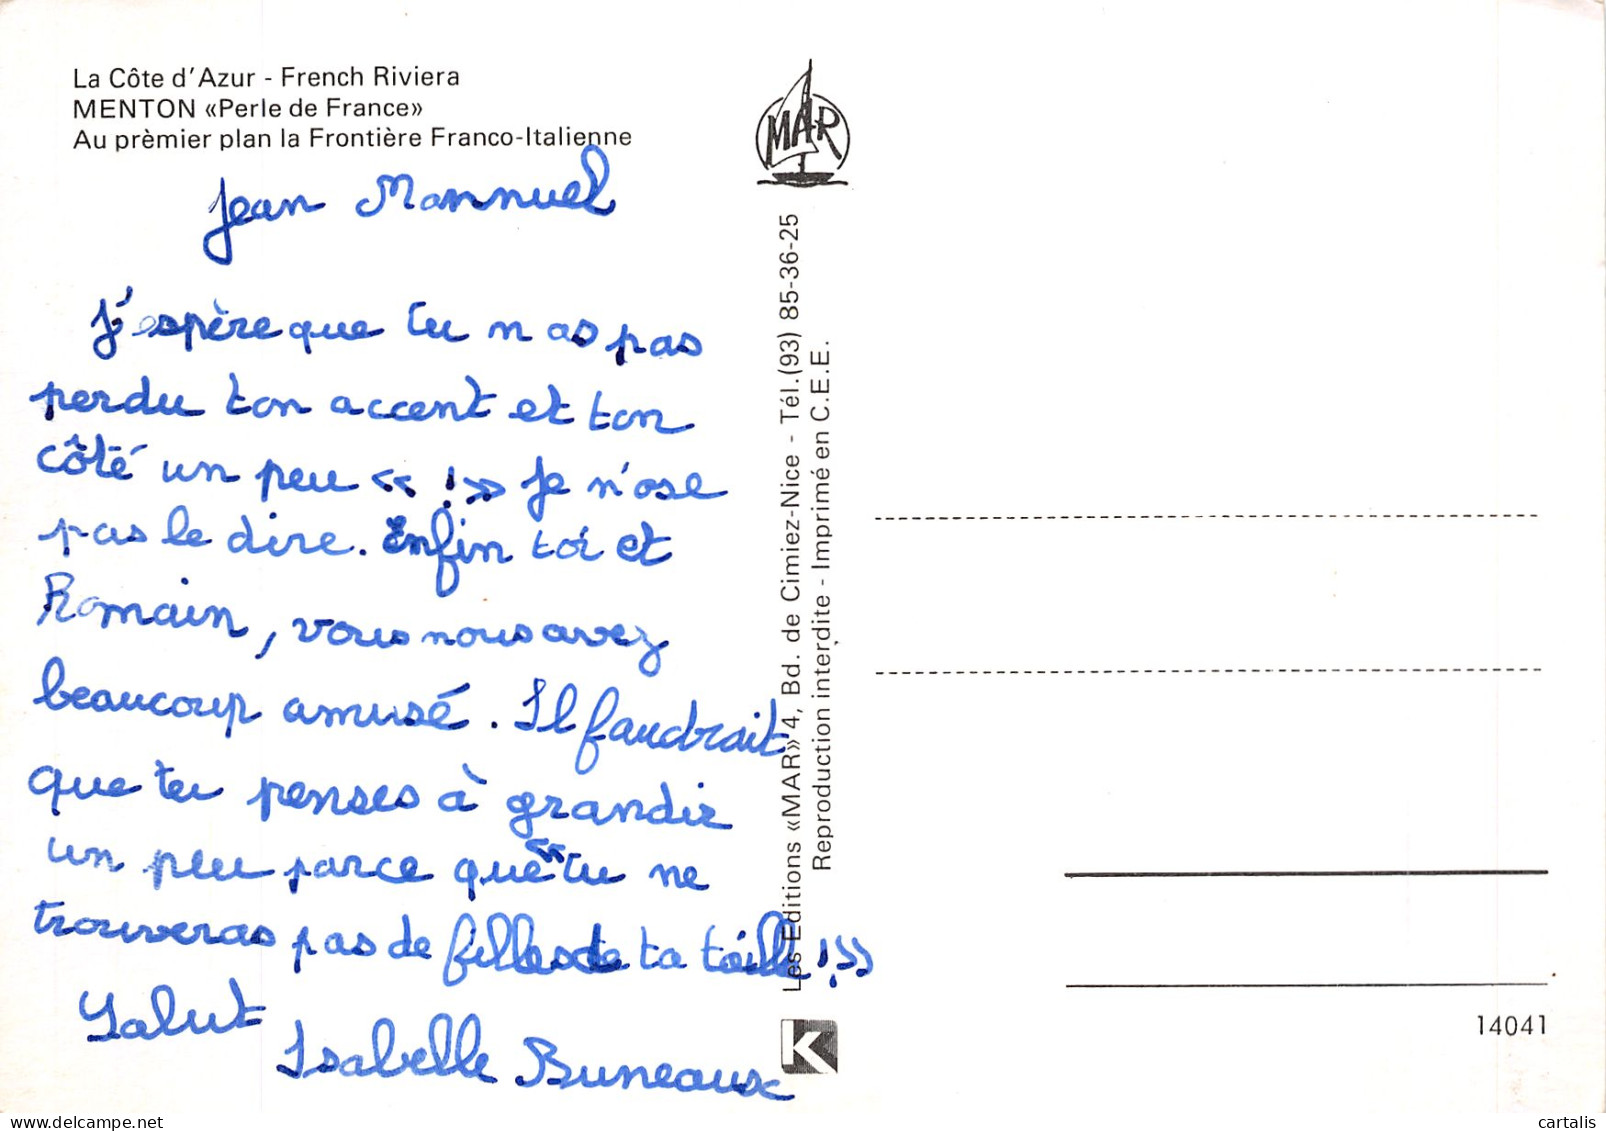 La Côte d'Azur - French Riviera
MENTON «Perle de France»
Au prèmier plan la Frontière Franco-Italienne
Jean Mannuel
J'espère que tu n as pas
perdu ton accent et ton
côté un peu « !» Je n'ose
pas le dire. Enfin toi et
Romain, vous nous avez
beaucoup amusé. Il faudrait
que tu penses à grandir
un peu parce que "tu ne
trouveras pas de filles de ta taille !»
Salut
Isabelle Buneaux
MAR
Les Editions «MAR» 4, Bd. de Cimiez-Nice - Tél.(93) 85-36-25
Reproduction interdite - Imprimé en C.E.E.
K
14041
delcampe.net
cartalis